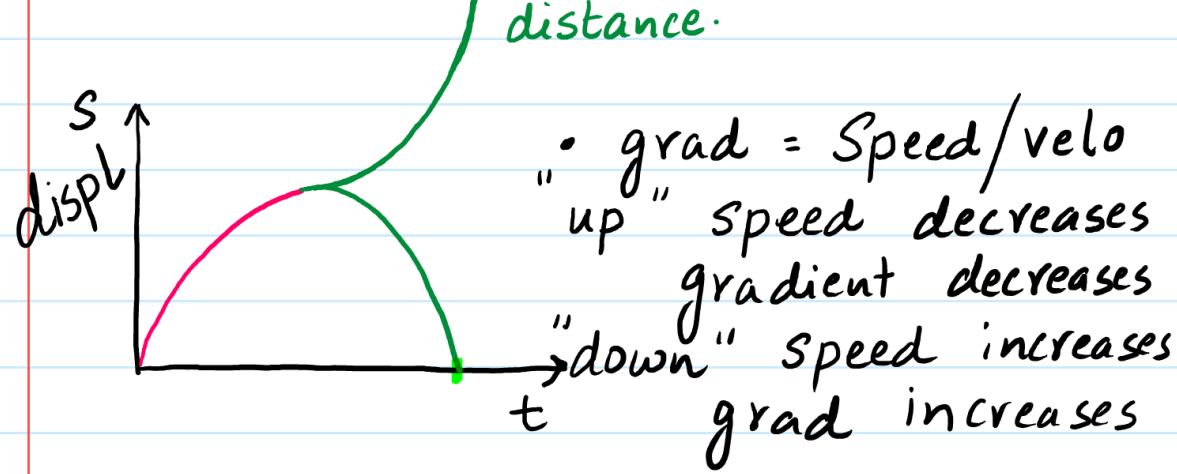 distance.
s
displ
• grad = Speed/velo
"up" speed decreases
gradient decreases
"down" speed increases
t
grad increases